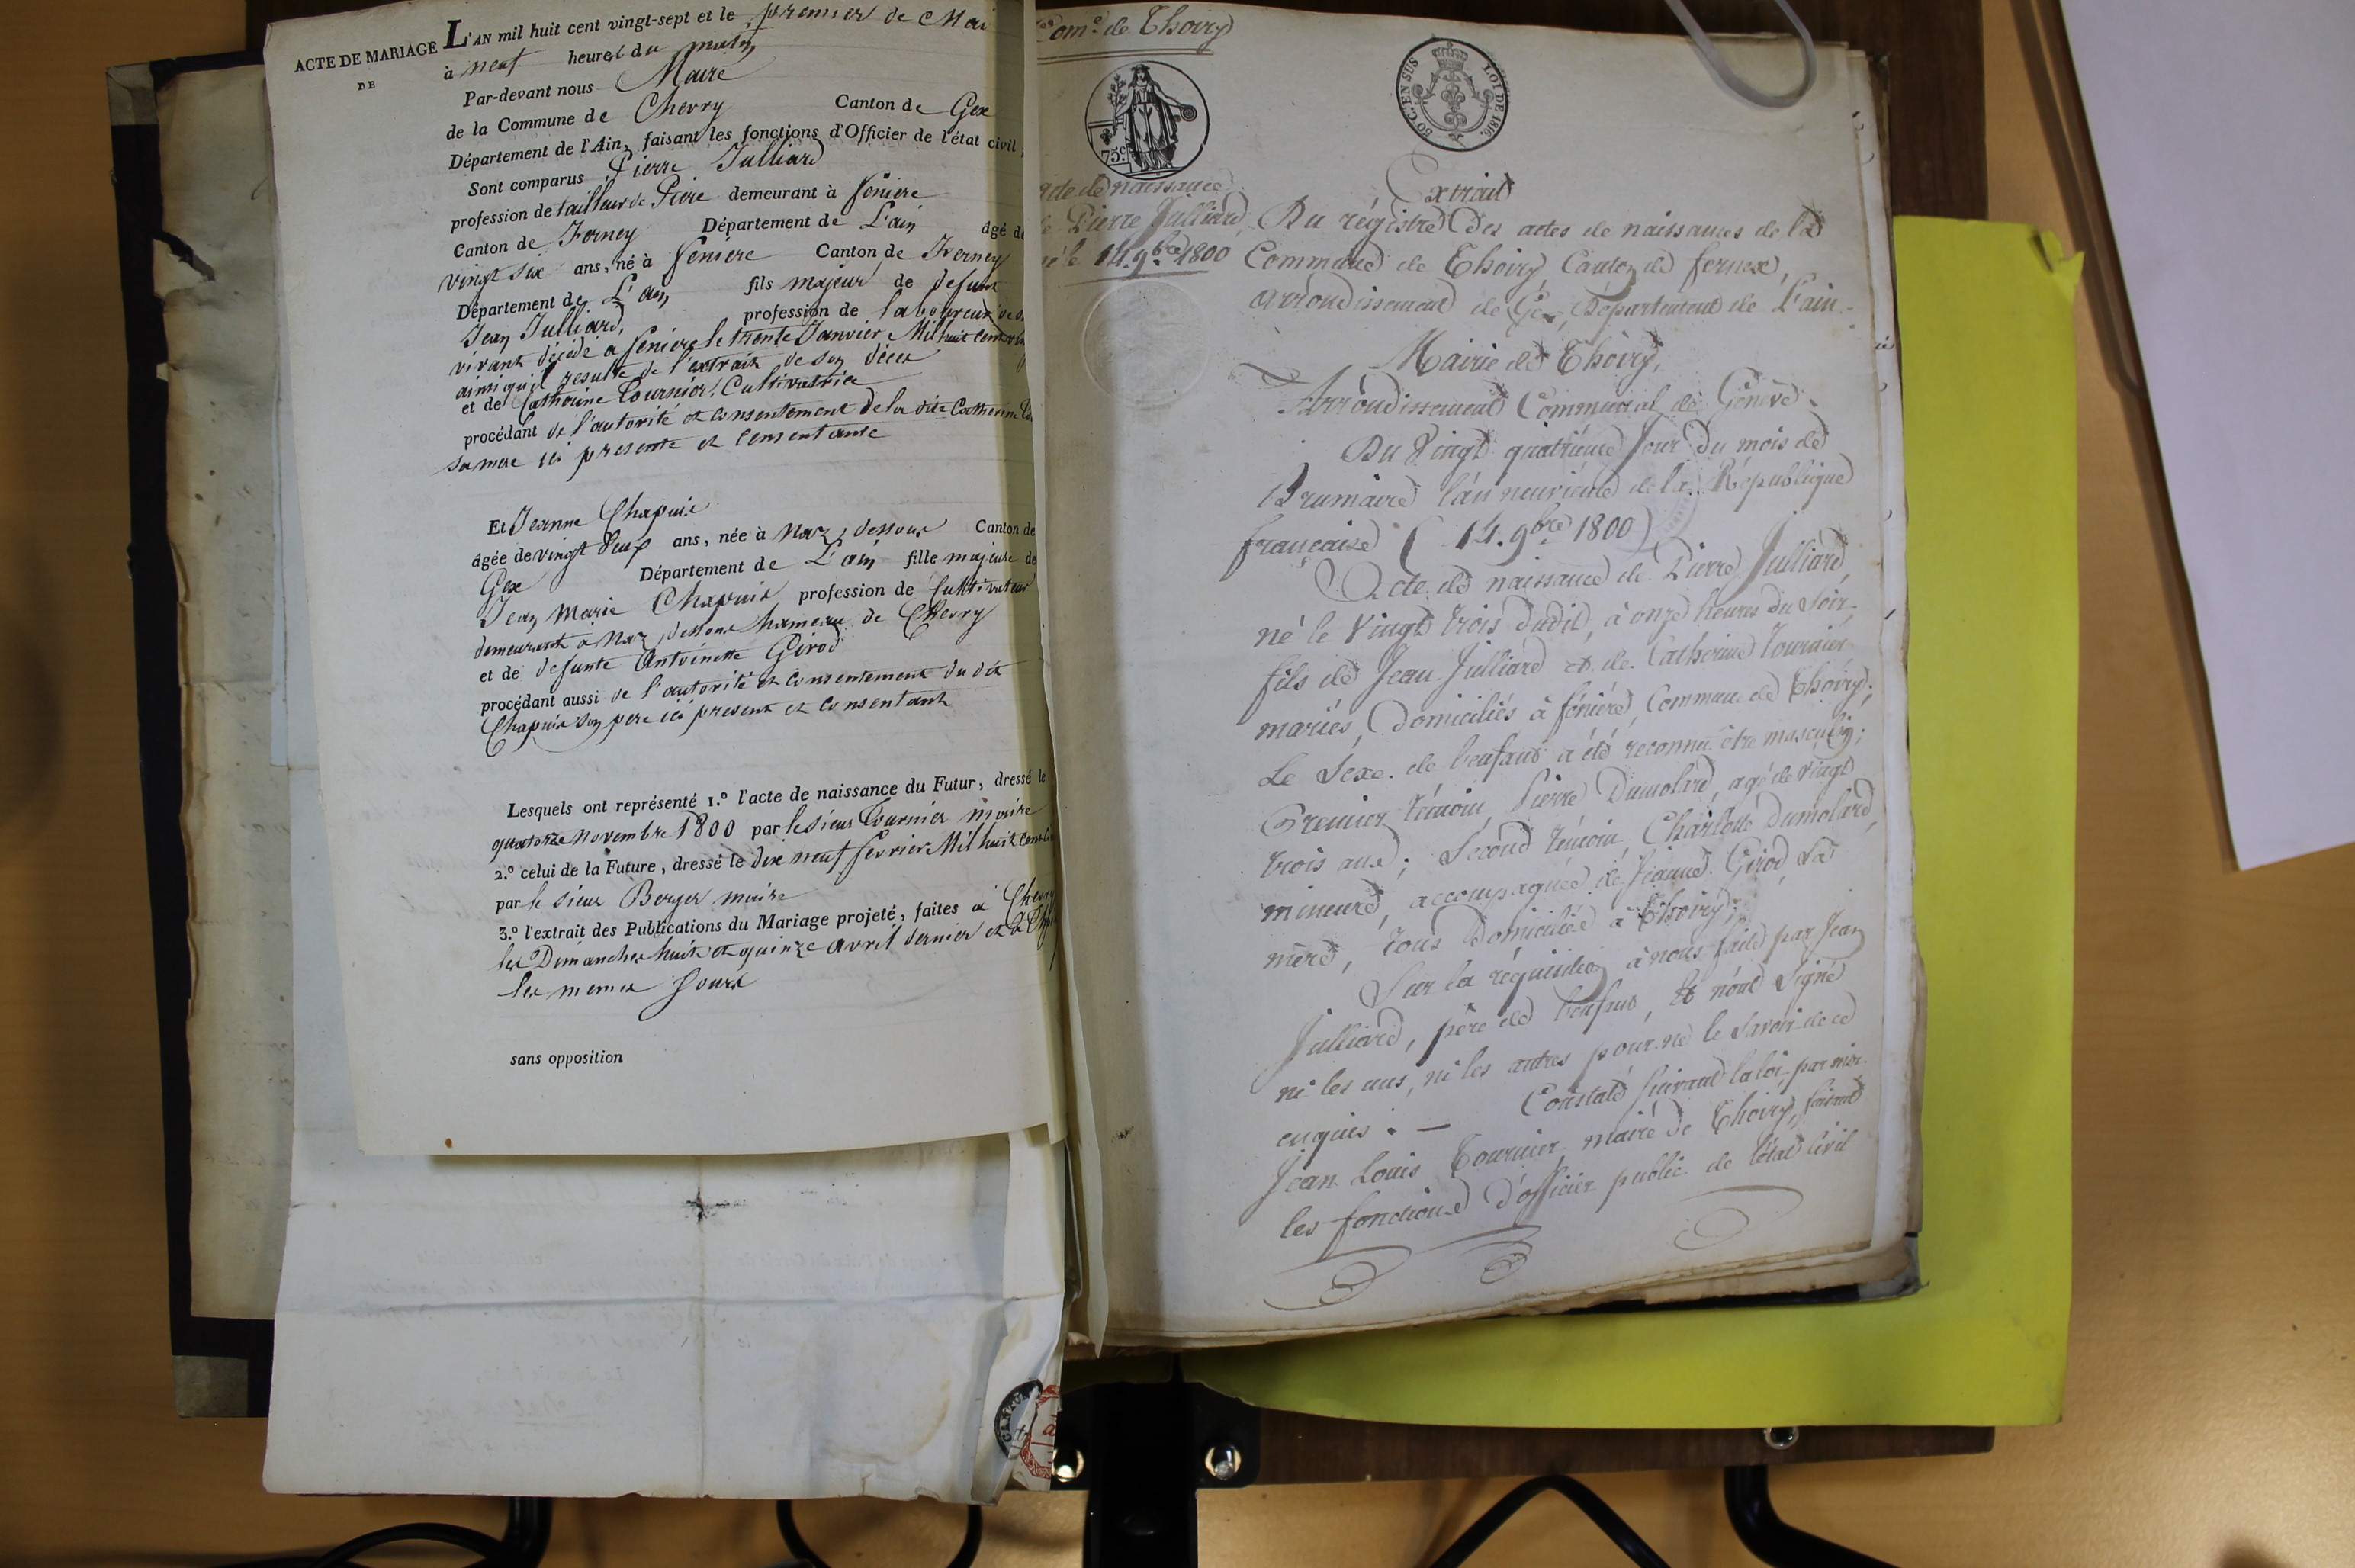 ACTE DE MARIAGE
DE
L'AN mil huit cent vingt-sept et le premier de Mai
à neuf heures du matin
Par-devant nous Maire
de la Commune de Chevry Canton de Gex
Département de l'Ain, faisant les fonctions d'Officier de l'état civil,
Sont comparus Pierre Julliard
profession de tailleur de Piere demeurant à feniere
Canton de Ferney Département de L'ain agé de
vingt six ans, né à feniere Canton de Ferney
Département de L'ain fils majeur de defunt
Jean Julliard, profession de laboureur de s
vivant décédé a feniere le trente Janvier Mil huit cent
ainsi quil resulte de l'extrait de son déces
et de Catherine Tournier, Cultivatrice
procédant de l'autorité et consentement de la dite Catherine
sa mere ici presente et consentante
Et Jeanne Chapuis
agée de vingt deux ans, née à Naz dessous Canton de
Gex Département de L'ain fille majeure de
Jean Marie Chapuis profession de Cultivateur
demeurant a Naz dessous hameau de Chevry
et de defunte Antoinette Girod
procédant aussi de l'autorité et consentement du dit
Chapuis son pere ici present et consentant
Lesquels ont représenté 1.º l'acte de naissance du Futur, dressé le
quatorze novembre 1800 par le sieur Tournier maire
2.º celui de la Future, dressé le dix neuf fevrier Mil huit cent
par le sieur Berger maire
3.º l'extrait des Publications du Mariage projeté, faites à Chevry
les Dimanches huit et quinze avril dernier et à
les memes Jours
sans opposition
Comᵉ de Thoiry
75ᶜ
50 C. EN SUS
LOI DE 1816.
acte de naissance
de Pierre Julliard,
né le 14. 9bre 1800
Extrait
Du régistre des actes de naissances de la
Commune de Thoiry, Canton de fernex,
arrondissement de Gex, Département de L'ain.
Mairie de Thoiry,
Arrondissement Communal de Genève.
Du Vingt quatrième Jour du mois de
Brumaire l'an neuvième de la République
française (14. 9bre 1800)
Acte de naissance de Pierre Julliard,
né le Vingt trois dudit, à onze heures du Soir,
fils de Jean Julliard et de Catherine Tournier
mariés, Domiciliés à féniere, Commune de Thoiry;
Le Sexe de l'enfant a été reconnu être masculin;
Premier témoin, Pierre Dumolard, agé de vingt
trois ans; Second témoin, Charlotte Dumolard,
mineure, accompagnée de Jeanne Girod, Sa
mère, tous Domiciliés à Thoiry;
Sur la réquisition à nous faite par Jean
Julliard, père de l'enfant, et n'ont Signé
ni les uns, ni les autres pour ne le Savoir de ce
enquis. — Constaté Suivant la loi, par moi
Jean Louis Tournier, maire de Thoiry, faisant
les fonctions d'officier public de l'état Civil
CANTON